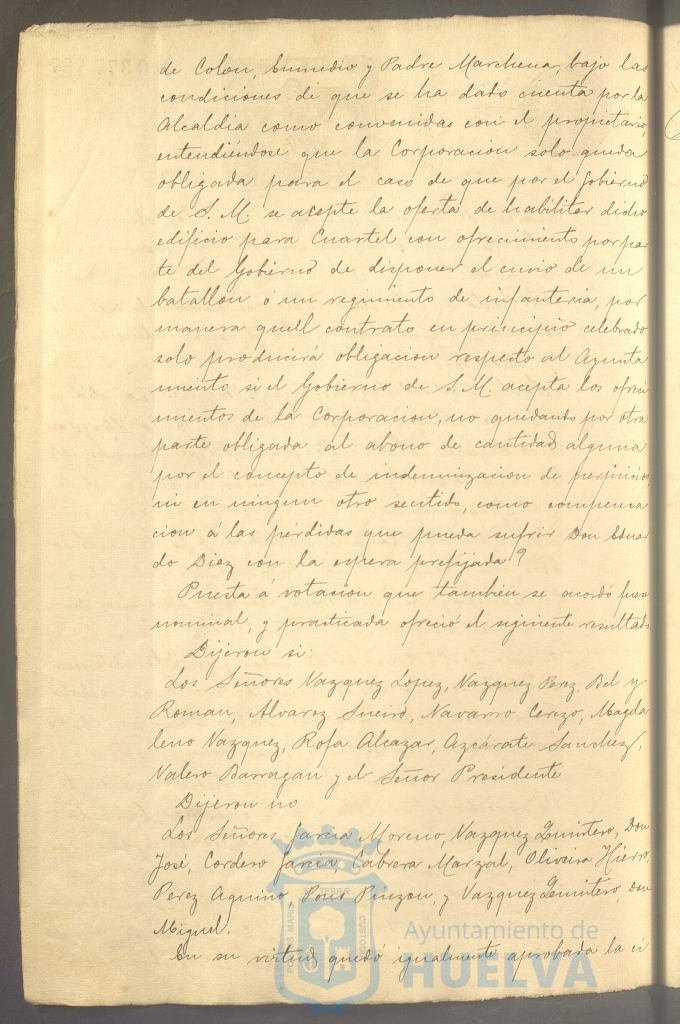 de Colon, Enmedio y Padre Marchena, bajo las
condiciones de que se ha dado cuenta por la
Alcaldia como convenidas con el propietario,
entendiéndose que la Corporacion solo queda
obligada para el caso de que por el Gobierno
de S. M. se acepte la oferta de habilitar dicho
edificio para Cuartel con ofrecimiento por par
te del Gobierno de disponer el envio de un
batallon ó un regimiento de infanteria, por
manera quell contrato en principio celebrado
solo producirá obligacion respecto al Ayunta
miento si el Gobierno de S. M. acepta los ofreci
mientos de la Corporacion, no quedando por otra
parte obligada al abono de cantidad alguna
por el concepto de indemnizacion de perjuicios,
ni en ningun otro sentido, como compensa
cion á las pérdidas que pueda sufrir Don Eduar
do Diez con la espera prefijada?
Puesta á votacion que tambien se acordó fuese
nominal, y practicada ofreció el siguiente resultado
Dijeron si:
Los Señores Vazquez Lopez, Vazquez Perez, Bel y
Roman, Alvarez Sueiro, Navarro Cerezo, Magda
leno Vazquez, Rofa Alcazar, Azcárate Sanchez,
Valero Barragan y el Señor Presidente
Dijeron no
Los Señores Garcia Moreno, Vazquez Quintero, Don
José, Cordero Garcia, Cabrera Marzal, Oliveira Hierro,
Perez Aquino Pons Pinzon, y Vazquez Quintero, Don
Miguel.
En su virtud quedó igualmente aprobada la ci
PORTUS MARIS ET TERRAE CUSTODIA
Ayuntamiento de
HUELVA